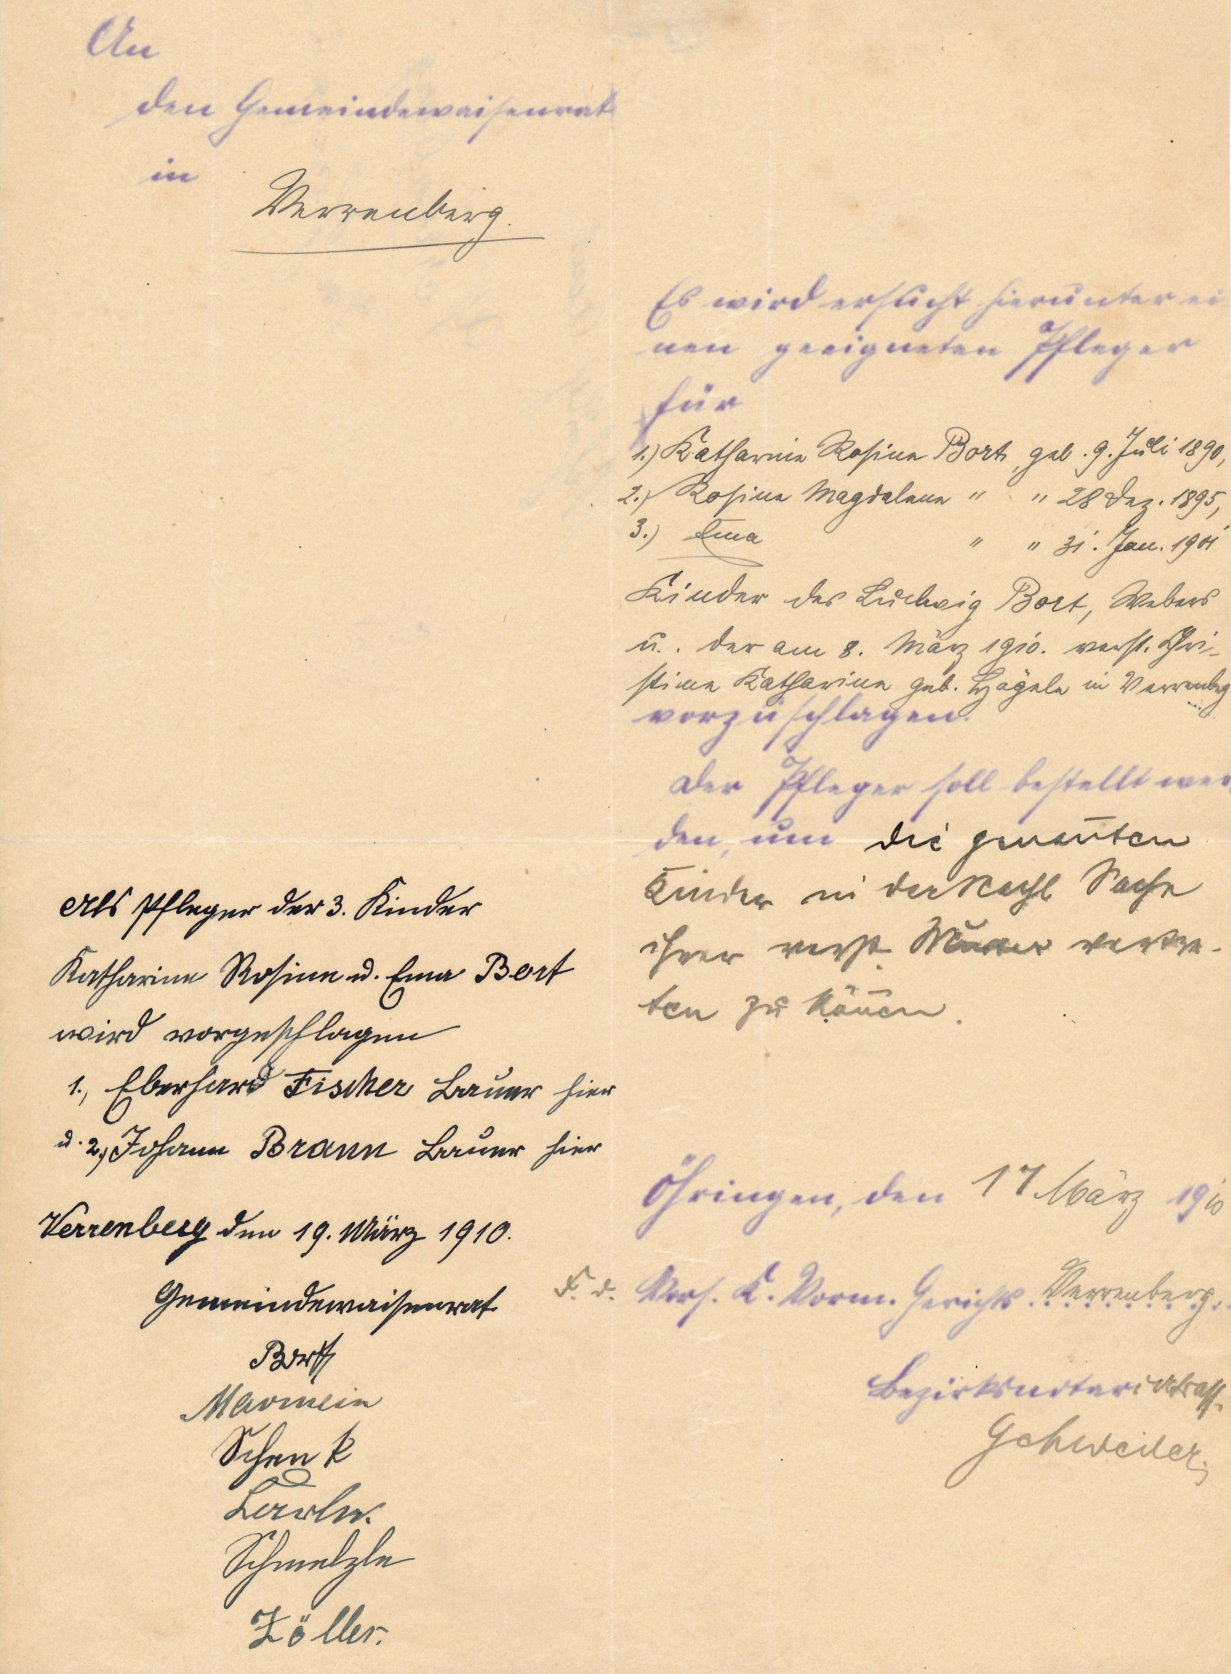 An
den Gemeindewaisenrat
in
Verrenberg.
Es wird ersucht hierunter ei
nen geeigneten Pfleger
für
1.) Katharine Rosine Bort, geb. 9. Juli 1890,
2.) Rosine Magdalene " " 28 Dez. 1895,
3.) Ema " " 31. Jan. 1901
Kinder des Ludwig Bort, Webers
u. der am 8. März 1910. verst. Chri-
stine Katharine geb. Hägele in Verrenberg
vorzuschlagen.
Der Pfleger soll bestellt wer
den, um die genannten
Kinder in der Nachl Sache
ihrer verst. Mutter vertre-
ten zu können.
Öhringen, den 17 März 1910
F. d. Vors. K. Vorm. Gerichts Verrenberg.
Bezirksnotariats
Gehweiler.
Als Pfleger der 3. Kinder
Katharine Rosine u. Ema Bort
wird vorgeschlagen
1., Eberhard Fischer Bauer hier
u. 2., Johann Braun Bauer hier
Verrenberg den 19. März 1910.
Gemeindewaisenrat
Bort
Schenk
Karle.
Schmelzle
Zöller.